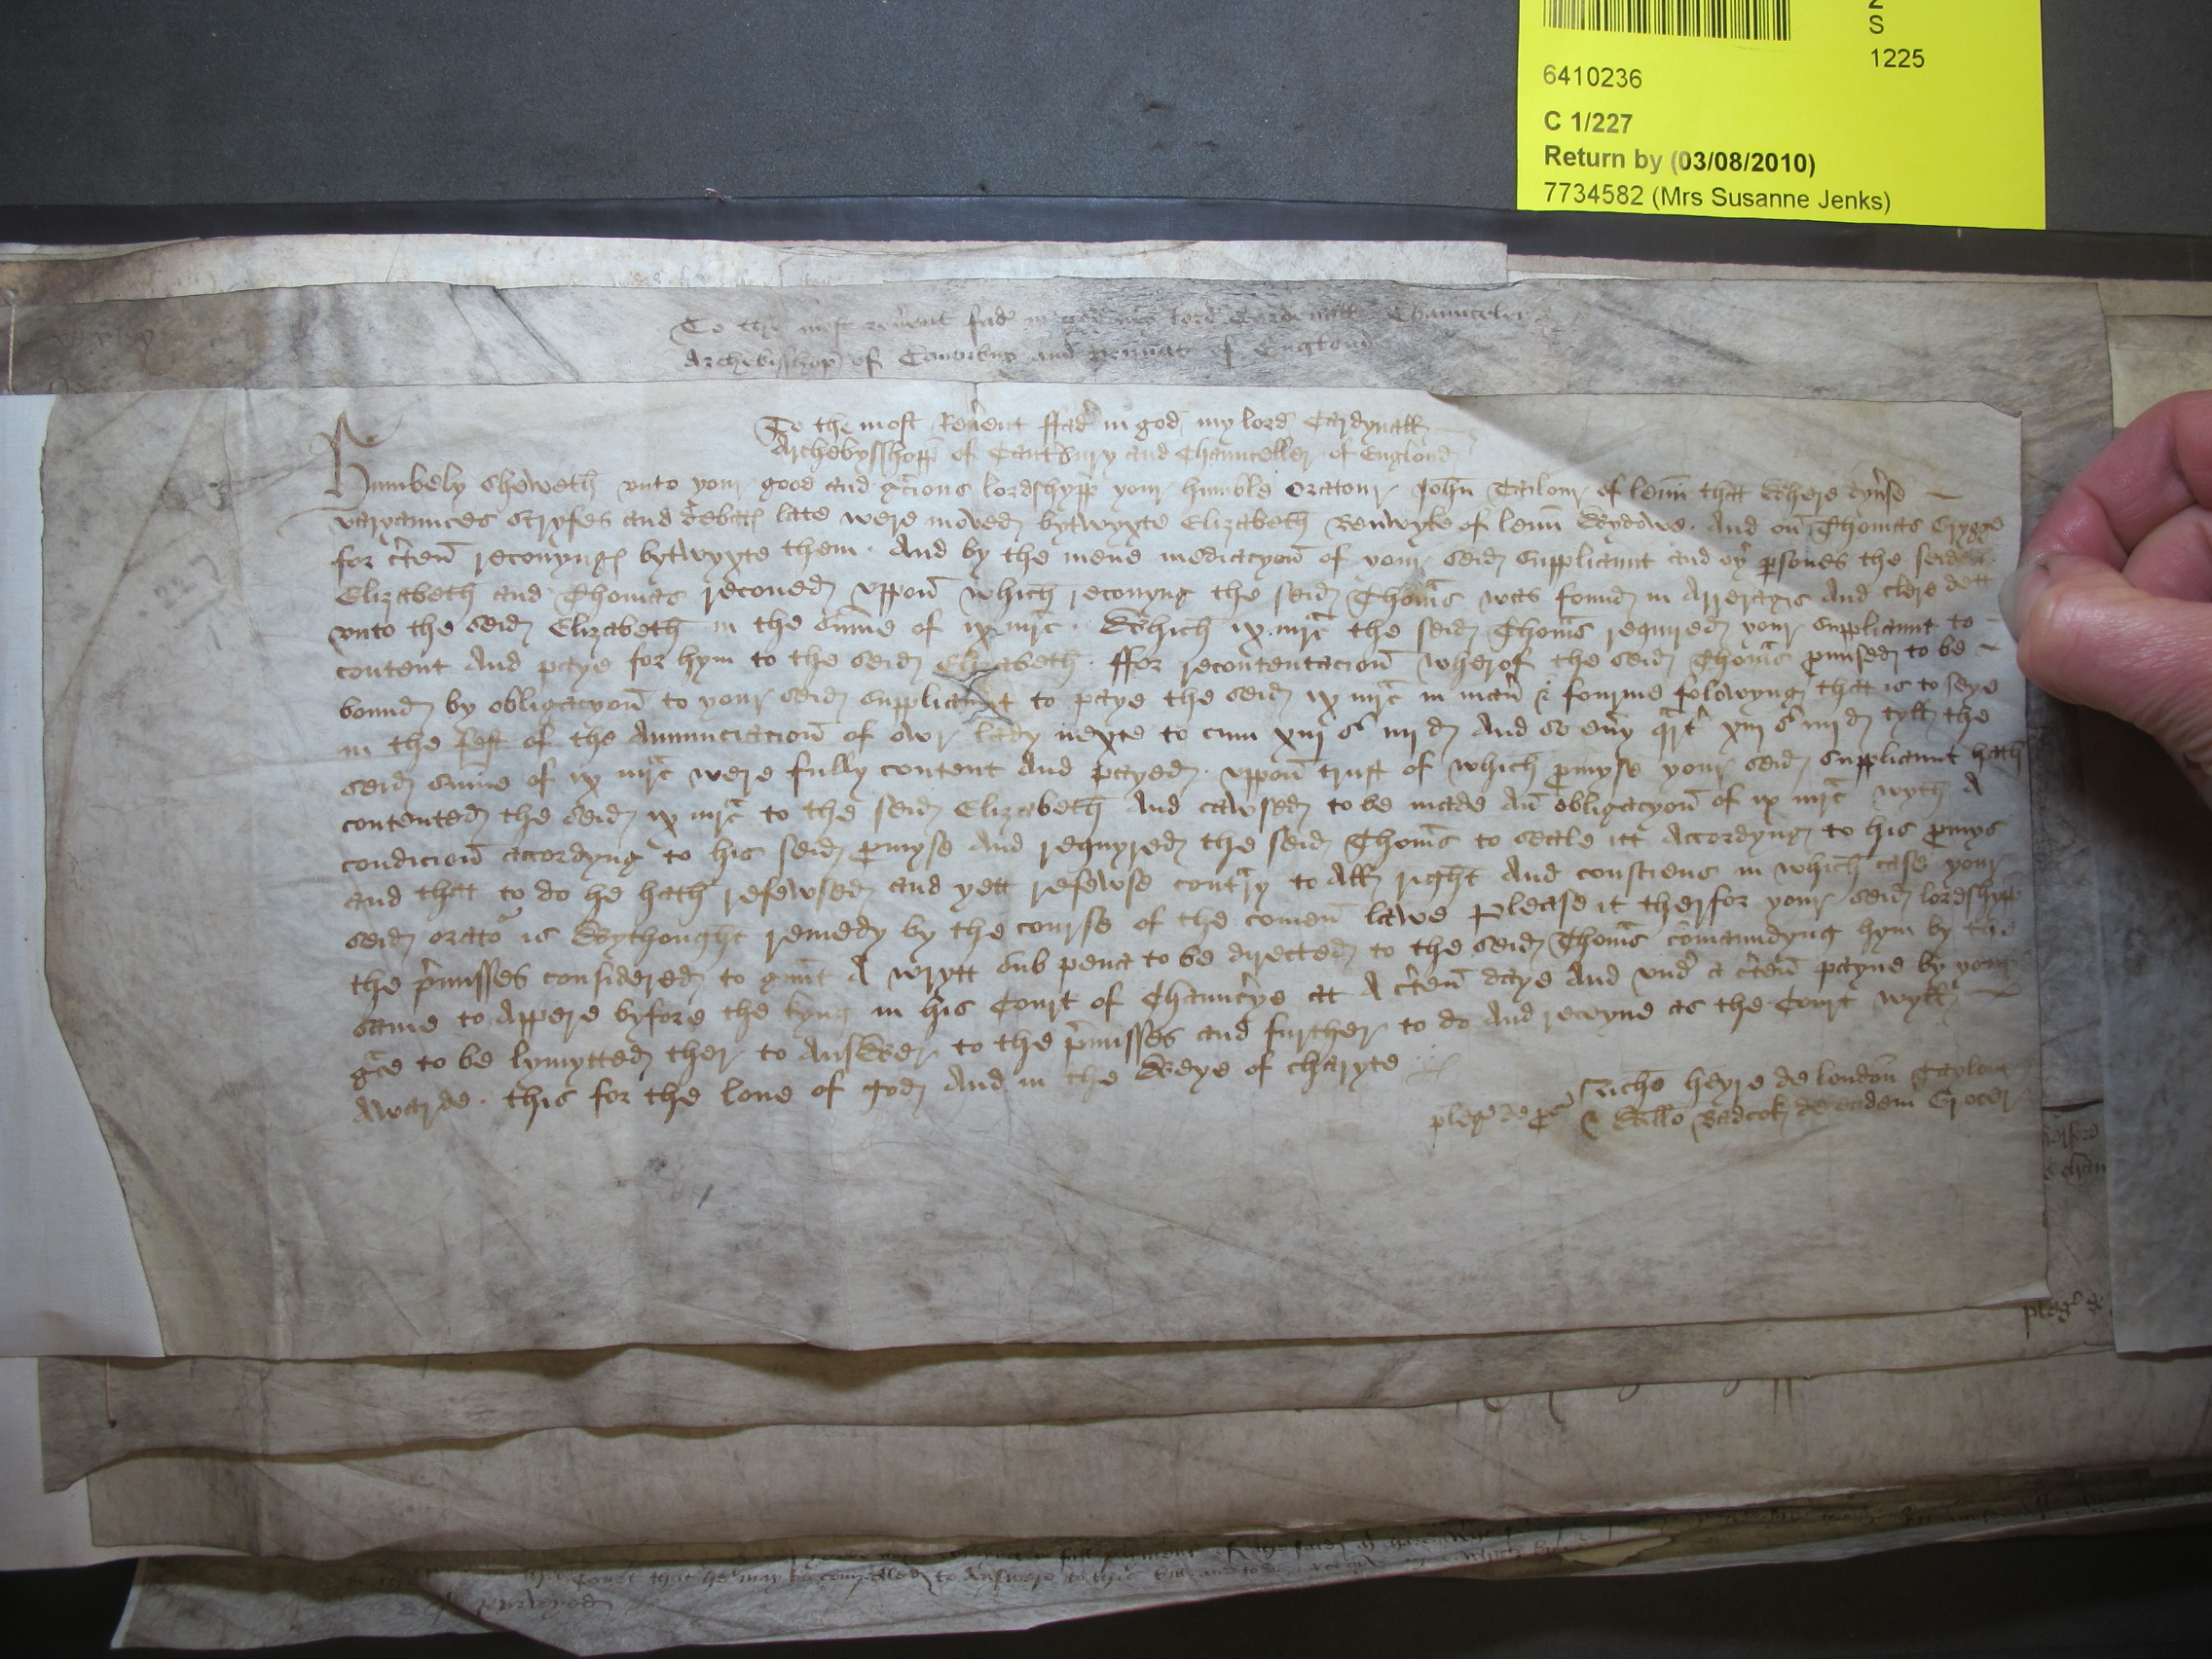 2
S
1225
6410236
C 1/227
Return by (03/08/2010)
7734582 (Mrs Susanne Jenks)
To the most rev'ent fad' in god my lord Cardenall Chaunceler
Archebisshop of Caunterbury and prymat of Englond
To the most Rev'ent ffad' in god my lord Cardynall
Archebysshopp of Cant'bury and Chaunceller of Englond
Humbely Sheweth vnto your good and gracious lordshypp your humble Oratour John Tailour of lenn that Where dyu'se
varyaunces stryfes and debat' late were moved bytwyxte Elizabeth of lenn Wydowe. And on Thomas
for c'ten reconyng' bytwyxte them. And by the mene mediacyon of your seid suppliaunt and oy' p'sones the seid
Elizabeth and Thomas reconed vppon which reconyng the seid Thom's was found in Arrerag's And clere dett
vnto the seid Elizabeth in the sume of ix m'rc. Which ix m'rc the seid Thom's required your suppliaunt to
content And paye for hym to the seid Elizabeth. ffor recontentacion wherof the seid Thom's p'mised to be
bound by obligacyon to your seid suppliaunt to paye the seid ix m'rc in man' & fourme folowyng that is to seye
in the fest of the Annunciacion of owr lady nexte to cum xiij s' iiij d And so eu'y q'rt' xiij s' iiij d tyll the
seid sume of ix m'rc were fully content And payed. vppon trust of which p'myse your seid suppliaunt hath
contented the seid ix m'rc to the seid Elizabeth And cawsed to be made An obligacyon of ix m'rc wyth A
condicion accordyng to his seid p'myse And requyred the seid Thom's to seale itt Accordyng to his p'mys
and that to do he hath refewsed and yett refewse contr'y to All right And consciens in which case your
seid orato' is Wythought remedy by the course of the comen lawe Please it therfor your seid lordshypp
the p'misses considered to g'unt A wrytt sub pena to be directed to the seid Thom's comaundyng hym by the
same to Appere byfore the kyng in his Court of Chaunc'ye att A c'ten daye And vnd' a c'ten payne by your
g'ce to be lymytted ther to AnsWer to the p'misses and further to do And receyue as the Court wyll
Awarde. this for the loue of god And in the Weye of charyte
pleg' de p' Ric'o heyre de london Taylour
& Will'o Badcok de eadem Grocer
pleg'